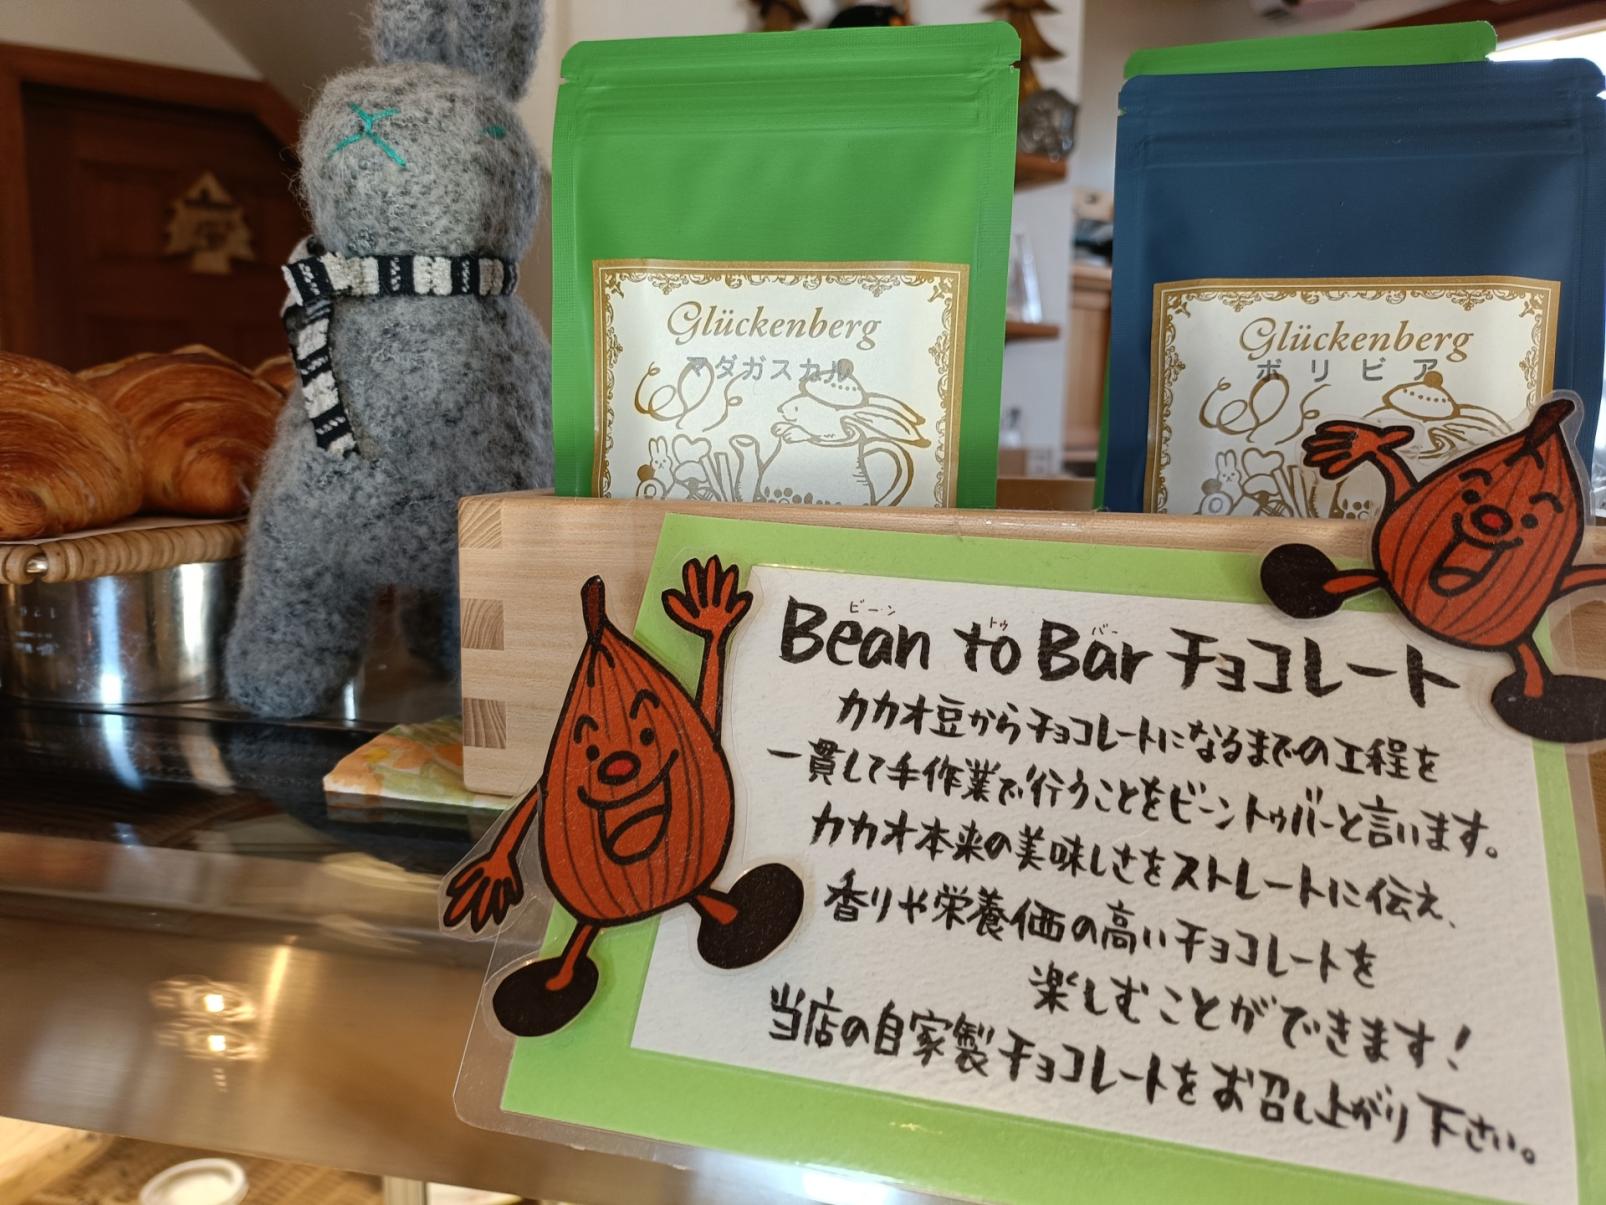 Glückenberg
マダガスカル
Glückenberg
ボリビア
ビーン トゥ バー
Bean to Bar チョコレート
カカオ豆からチョコレートになるまでの工程を
一貫して手作業で行うことをビーントゥバーと言います。
カカオ本来の美味しさをストレートに伝え、
香りや栄養価の高いチョコレートを
楽しむことができます!
当店の自家製チョコレートをお召し上がり下さい。